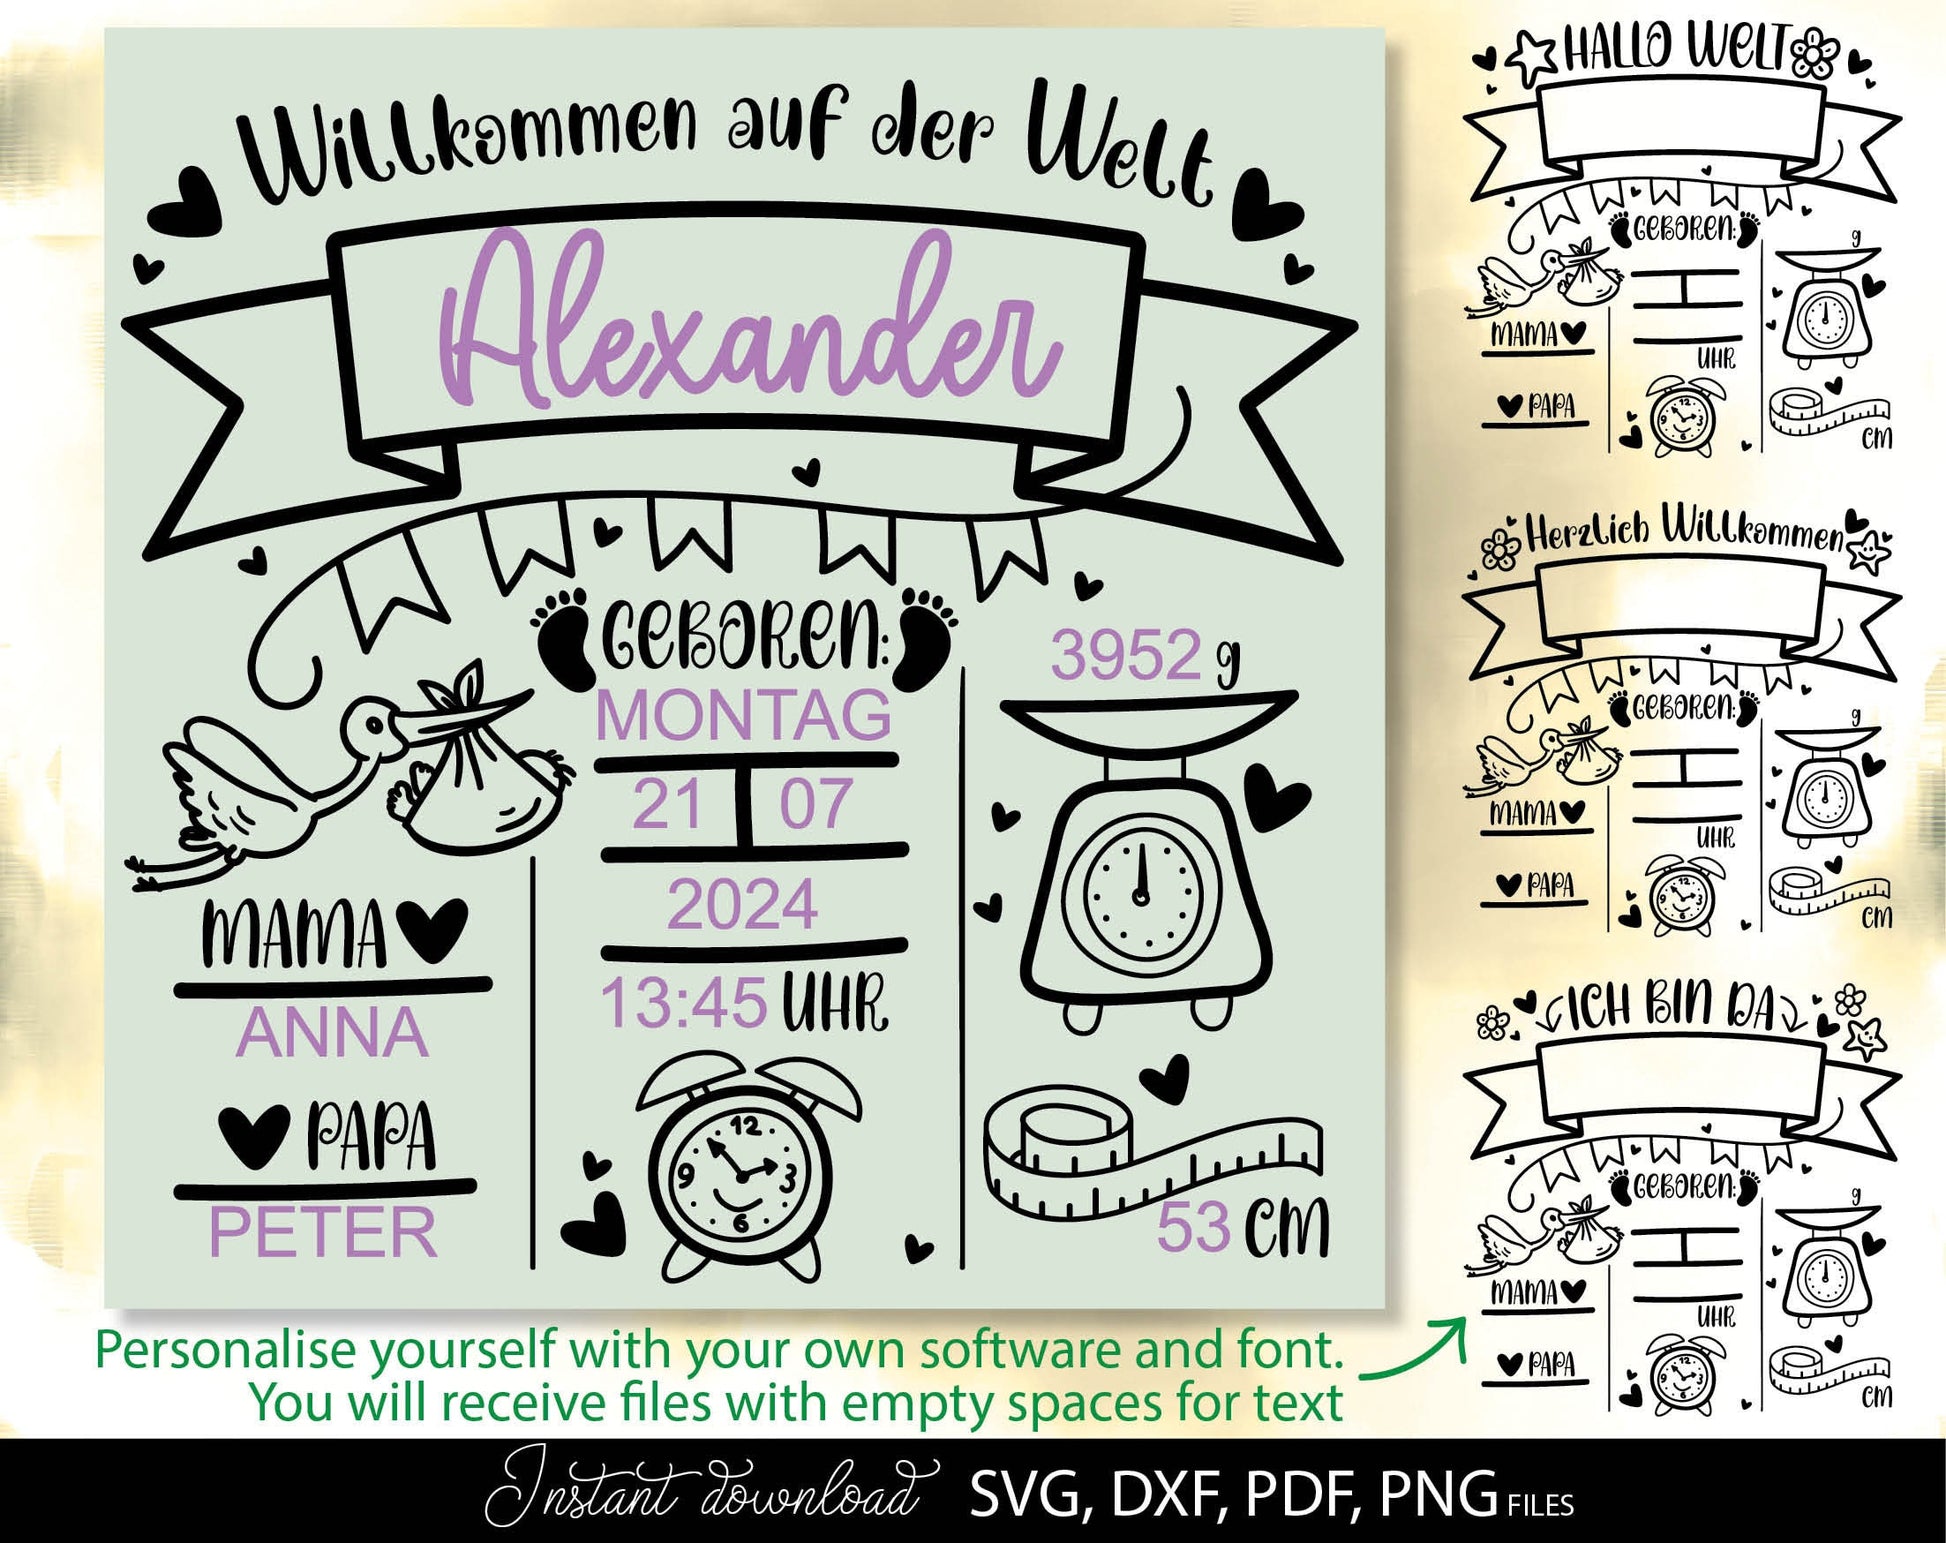 Willkommen auf der Welt
Alexander
GEBOREN:
MONTAG
21 07
2024
13:45 UHR
12
9 3
6
MAMA
ANNA
PAPA
PETER
3952 g
53 CM
HALLO WELT
GEBOREN:
g
MAMA
UHR
PAPA
12
9 3
6
CM
Herzlich Willkommen
GEBOREN:
g
MAMA
UHR
PAPA
12
9 3
6
CM
ICH BIN DA
GEBOREN:
g
MAMA
UHR
PAPA
12
9 3
6
CM
Personalise yourself with your own software and font.
You will receive files with empty spaces for text
Instant download SVG, DXF, PDF, PNG FILES